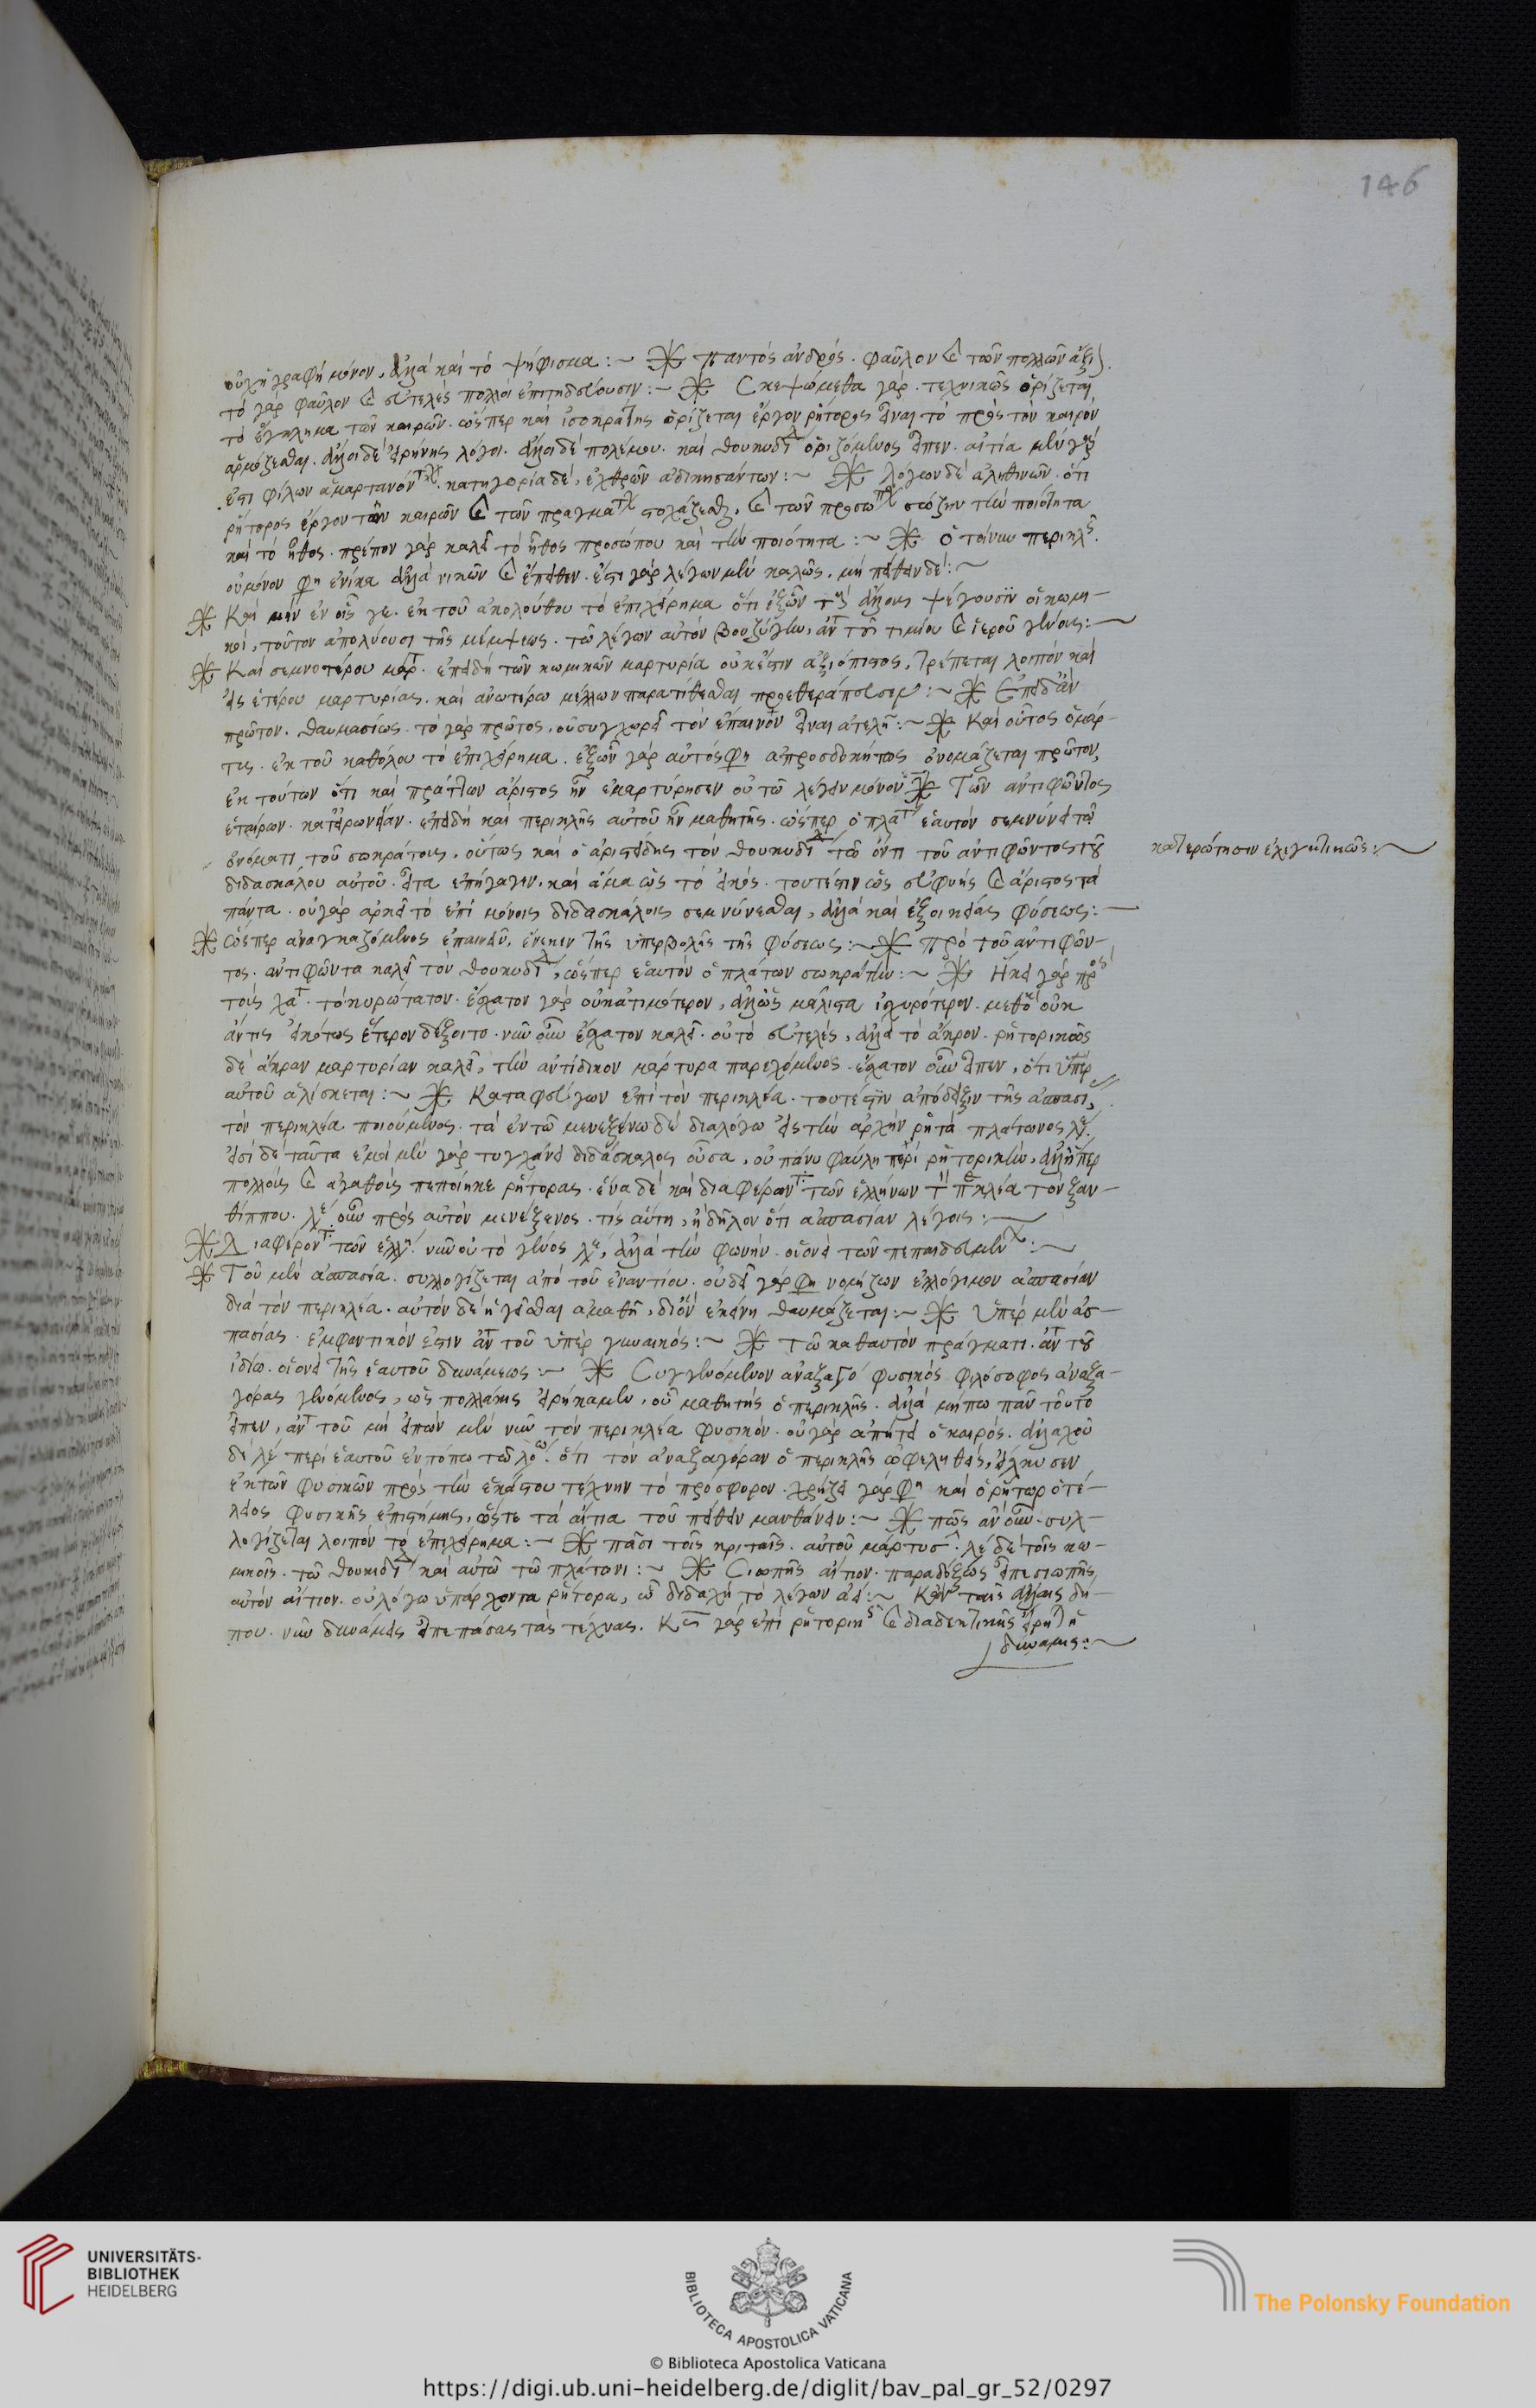 146
οὐχὶ γραφὴ μόνον, ἀλλὰ καὶ τὸ ψήφισμα :~ ※ παντὸς ἀνδρός. φαῦλον καὶ τῶν πολλῶν ἄξι
τὸ γὰρ φαῦλον καὶ εὐτελὲς πολλοὶ ἐπιτηδεύουσιν :~ ※ Σκεψώμεθα γάρ. τεχνικῶς ὁρίζεται
τὸ ἔγκλημα τῶν καιρῶν. ὥσπερ καὶ ἰσοκράτης ὁρίζεται ἔργον ῥήτορος εἶναι τὸ πρὸς τὸν καιρὸν
ἁρμόζεσθαι. ἄλλοι δὲ εἰρήνης λόγοι. ἄλλοι δὲ πολέμου. καὶ θουκυδί ὁριζόμενος εἶπεν. αἰτία μὲν γάρ
ἐστι φίλων ἁμαρτανόντων. κατηγορία δέ, ἐχθρῶν ἀδικησάντων :~ ※ λόγων δὲ ἀληθινῶν. ὅτι
ῥήτορος ἔργον τῶν καιρῶν καὶ τῶν πραγμάτων στοχάζεσθαι, καὶ τῶν προσώπων σώζειν τὴν ποιότητα
καὶ τὸ ἦθος. πρέπον γὰρ καλεῖ τὸ ἦθος προσώπου καὶ τὴν ποιότητα :~ ※ ὁ τοίνυν περικλῆς.
οὐ μόνον φη ἐνίκα ἀλλὰ νικῶν καὶ ἔπειθεν. ἔστι γὰρ λέγων μὲν καλῶς, μὴ πείθειν δέ :~
※ Καὶ μὴν ἐν οἷς γε. ἐκ τοῦ ἀκολούθου τὸ ἐπιχείρημα ὅτι ἐξ ὧν τοὺς ἄλλους ψέγουσιν οἱ κωμι-
κοί, τοῦτον ἀπολύουσι τῆς μέμψεως. τῷ λέγειν αὐτὸν βουζύγην, ἀντὶ τοῦ τιμίου καὶ ἱεροῦ γένους :~
※ Καὶ σεμνοτέρου μάρτ. ἐπειδὴ τῶν κωμικῶν μαρτυρία οὐκ ἔστιν ἀξιόπιστος, τρέπεται λοιπὸν καὶ
εἰς ἑτέρου μαρτυρίας. καὶ ἀνωτέρω μέλλων παρατίθεσθαι προεθεράπευσεν :~ ※ Ἐπειδὰν
πρῶτον. θαυμασίως. τὸ γὰρ πρῶτος, οὐ συγχωρεῖ τὸν ἔπαινον εἶναι ἀτελῆ :~ ※ Καὶ οὗτος ὁ μάρ-
τυς. ἐκ τοῦ καθόλου τὸ ἐπιχείρημα. ἐξ ὧν γὰρ αὐτός φη ἀπροσδοκήτως ὀνομάζεται πρῶτον,
ἐκ τούτων ὅτι καὶ πράττων ἄριστος ἦν ἐμαρτύρησεν οὐ τῷ λέγειν μόνον ※ Τῶν ἀντιφῶντος
ἑταίρων. κατ' εἰρωνείαν. ἐπειδὴ καὶ περικλῆς αὐτοῦ ἦν μαθητής. ὥσπερ ὁ πλάτ ἑαυτὸν σεμνύνει τῷ
ὀνόματι τοῦ σωκράτους, οὕτως καὶ ὁ ἀριστείδης τὸν θουκυδί τῷ ὄντι τοῦ ἀντιφῶντος τοῦ
κατ' ἐρώτησιν ἐλεγκτικῶς :~
διδασκάλου αὐτοῦ. εἶτα ἐπήγαγεν. καὶ ἅμα ὡς τὸ εἰκός. τουτέστιν ὡς εὐφυὴς καὶ ἄριστος τὰ
πάντα. οὐ γὰρ ἀρκεῖ τὸ ἐπὶ μόνοις διδασκάλοις σεμνύνεσθαι, ἀλλὰ καὶ ἐξ οἰκείας φύσεως :~
※ ὥσπερ ἀναγκαζόμενος ἐπαινεῖν, ἕνεκεν τῆς ὑπερβολῆς τῆς φύσεως :~ ※ πρὸ τοῦ ἀντιφῶν-
τος. ἀντιφῶντα καλεῖ τὸν θουκυδί, ὥσπερ ἑαυτὸν ὁ πλάτων σωκράτην :~ ※ Ἥκει γὰρ πρὸς
τοὺς . τὸ κυριώτατον. ἔσχατον γὰρ οὐκ ἀτιμότερον, ἀλλ' ὡς μάλιστα ἰσχυρότερον. μεθ' ὃ οὐκ
ἄν τις εἰκότως ἕτερον δέξοιτο. νῦν οὖν ἔσχατον καλεῖ. οὐ τὸ εὐτελές, ἀλλὰ τὸ ἄκρον. ῥητορικῶς
δὲ ἄκραν μαρτυρίαν καλεῖ, τὴν ἀντίδικον μάρτυρα παρεχόμενος. ἔσχατον οὖν εἶπεν, ὅτι ὑπὲρ
αὐτοῦ ἁλίσκεται :~ ※ Καταφεύγων ἐπὶ τὸν περικλέα. τουτέστιν ἀπόδειξιν τῆς ἀσπασί
τὸν περικλέα ποιούμενος. τὰ ἐν τῷ μενεξένῳ δὲ διαλόγῳ εἰς τὴν ἀρχὴν ῥητὰ πλάτωνος λέγ.
εἰσὶ δὲ ταῦτα ἐμοὶ μὲν γὰρ τυγχάνει διδάσκαλος οὖσα, οὐ πάνυ φαύλη περὶ ῥητορικήν, ἀλλ' ἥπερ
πολλοὺς καὶ ἀγαθοὺς πεποίηκε ῥήτορας. ἕνα δὲ καὶ διαφέροντ. τῶν ἑλλήνων τὸν περικλέα τὸν ξαν-
θίππου. λέγει οὖν πρὸς αὐτὸν μενέξενος. τίς αὕτη, ἢ δῆλον ὅτι ἀσπασίαν λέγεις :~
※ Διαφέροντ. τῶν ἑλλή. νῦν οὐ τὸ γένος λέγει, ἀλλὰ τὴν φωνήν. οἷον εἰ τῶν πεπαιδευμένων :~
※ Τοῦ μὲν ἀσπασία. συλλογίζεται ἀπὸ τοῦ ἐναντίου. οὐ δεῖ γάρ φη νομίζειν ἐλλόγιμον ἀσπασίαν
διὰ τὸν περικλέα. αὐτὸν δὲ ἡγεῖσθαι ἀμαθῆ, δι' ὃν ἐκείνη θαυμάζεται :~ ※ Ὑπὲρ μὲν ἀσ-
πασίας. ἐμφαντικόν ἐστιν ἀντὶ τοῦ ὑπὲρ γυναικός :~ ※ Τῷ καθ' αὑτὸν πράγματι. ἀντὶ τοῦ
ἰδίῳ. οἷον εἰ τῆς ἑαυτοῦ δυνάμεως :~ ※ Συγγενόμενον ἀναξαγό φυσικὸς φιλόσοφος ἀναξα-
γόρας γενόμενος, ὡς πολλάκις εἰρήκαμεν, οὗ μαθητὴς ὁ περικλῆς. ἀλλὰ μήπω πᾶν τοῦτο
εἶπεν, ἀντὶ τοῦ μὴ εἰπὼν μὲν νῦν τὸν περικλέα φυσικόν. οὐ γὰρ ἀπῄτει ὁ καιρός. ἀλλαχοῦ
δὲ λέ περὶ ἑαυτοῦ ἐν τόπῳ τῷ λό. ὅτι τὸν ἀναξαγόραν ὁ περικλῆς ὠφεληθείς, εἵλκυσεν
ἐκ τῶν φυσικῶν πρὸς τὴν ἑκάστου τέχνην τὸ πρόσφορον. χρῄζει γάρ φη καὶ ὁ ῥήτωρ ὁ τέ-
λειος φυσικῆς ἐπιστήμης, ὥστε τὰ αἴτια τοῦ πείθειν μανθάνειν :~ ※ πῶς ἂν οὖν. συλ-
λογίζεται λοιπὸν τὸ ἐπιχείρημα :~ ※ πᾶσι τοῖς κριταῖς. αὐτοῦ μάρτυσ. λέ δὲ τοῖς κω-
μικοῖς. τῷ θουκιδί καὶ αὐτῷ τῷ πλάτωνι :~ ※ Σιωπῆς αἴτιον. παραδόξως εἶπε σιωπῆς
αὐτὸν αἴτιον. οὐ λόγῳ ὑπάρχοντα ῥήτορα, ᾧ διδαχὴ τὸ λέγειν ἀεί :~ Κἀν ταῖς ἄλλαις δή-
που. νῦν δυνάμεις εἶπε πάσας τὰς τέχνας. καὶ γὰρ ἐπὶ ῥητορικῆς καὶ διαλεκτικῆς εἴρηται ἡ
δύναμις :~
UNIVERSITÄTS-
BIBLIOTHEK
HEIDELBERG
BIBLIOTECA APOSTOLICA VATICANA
The Polonsky Foundation
© Biblioteca Apostolica Vaticana
https://digi.ub.uni-heidelberg.de/diglit/bav_pal_gr_52/0297